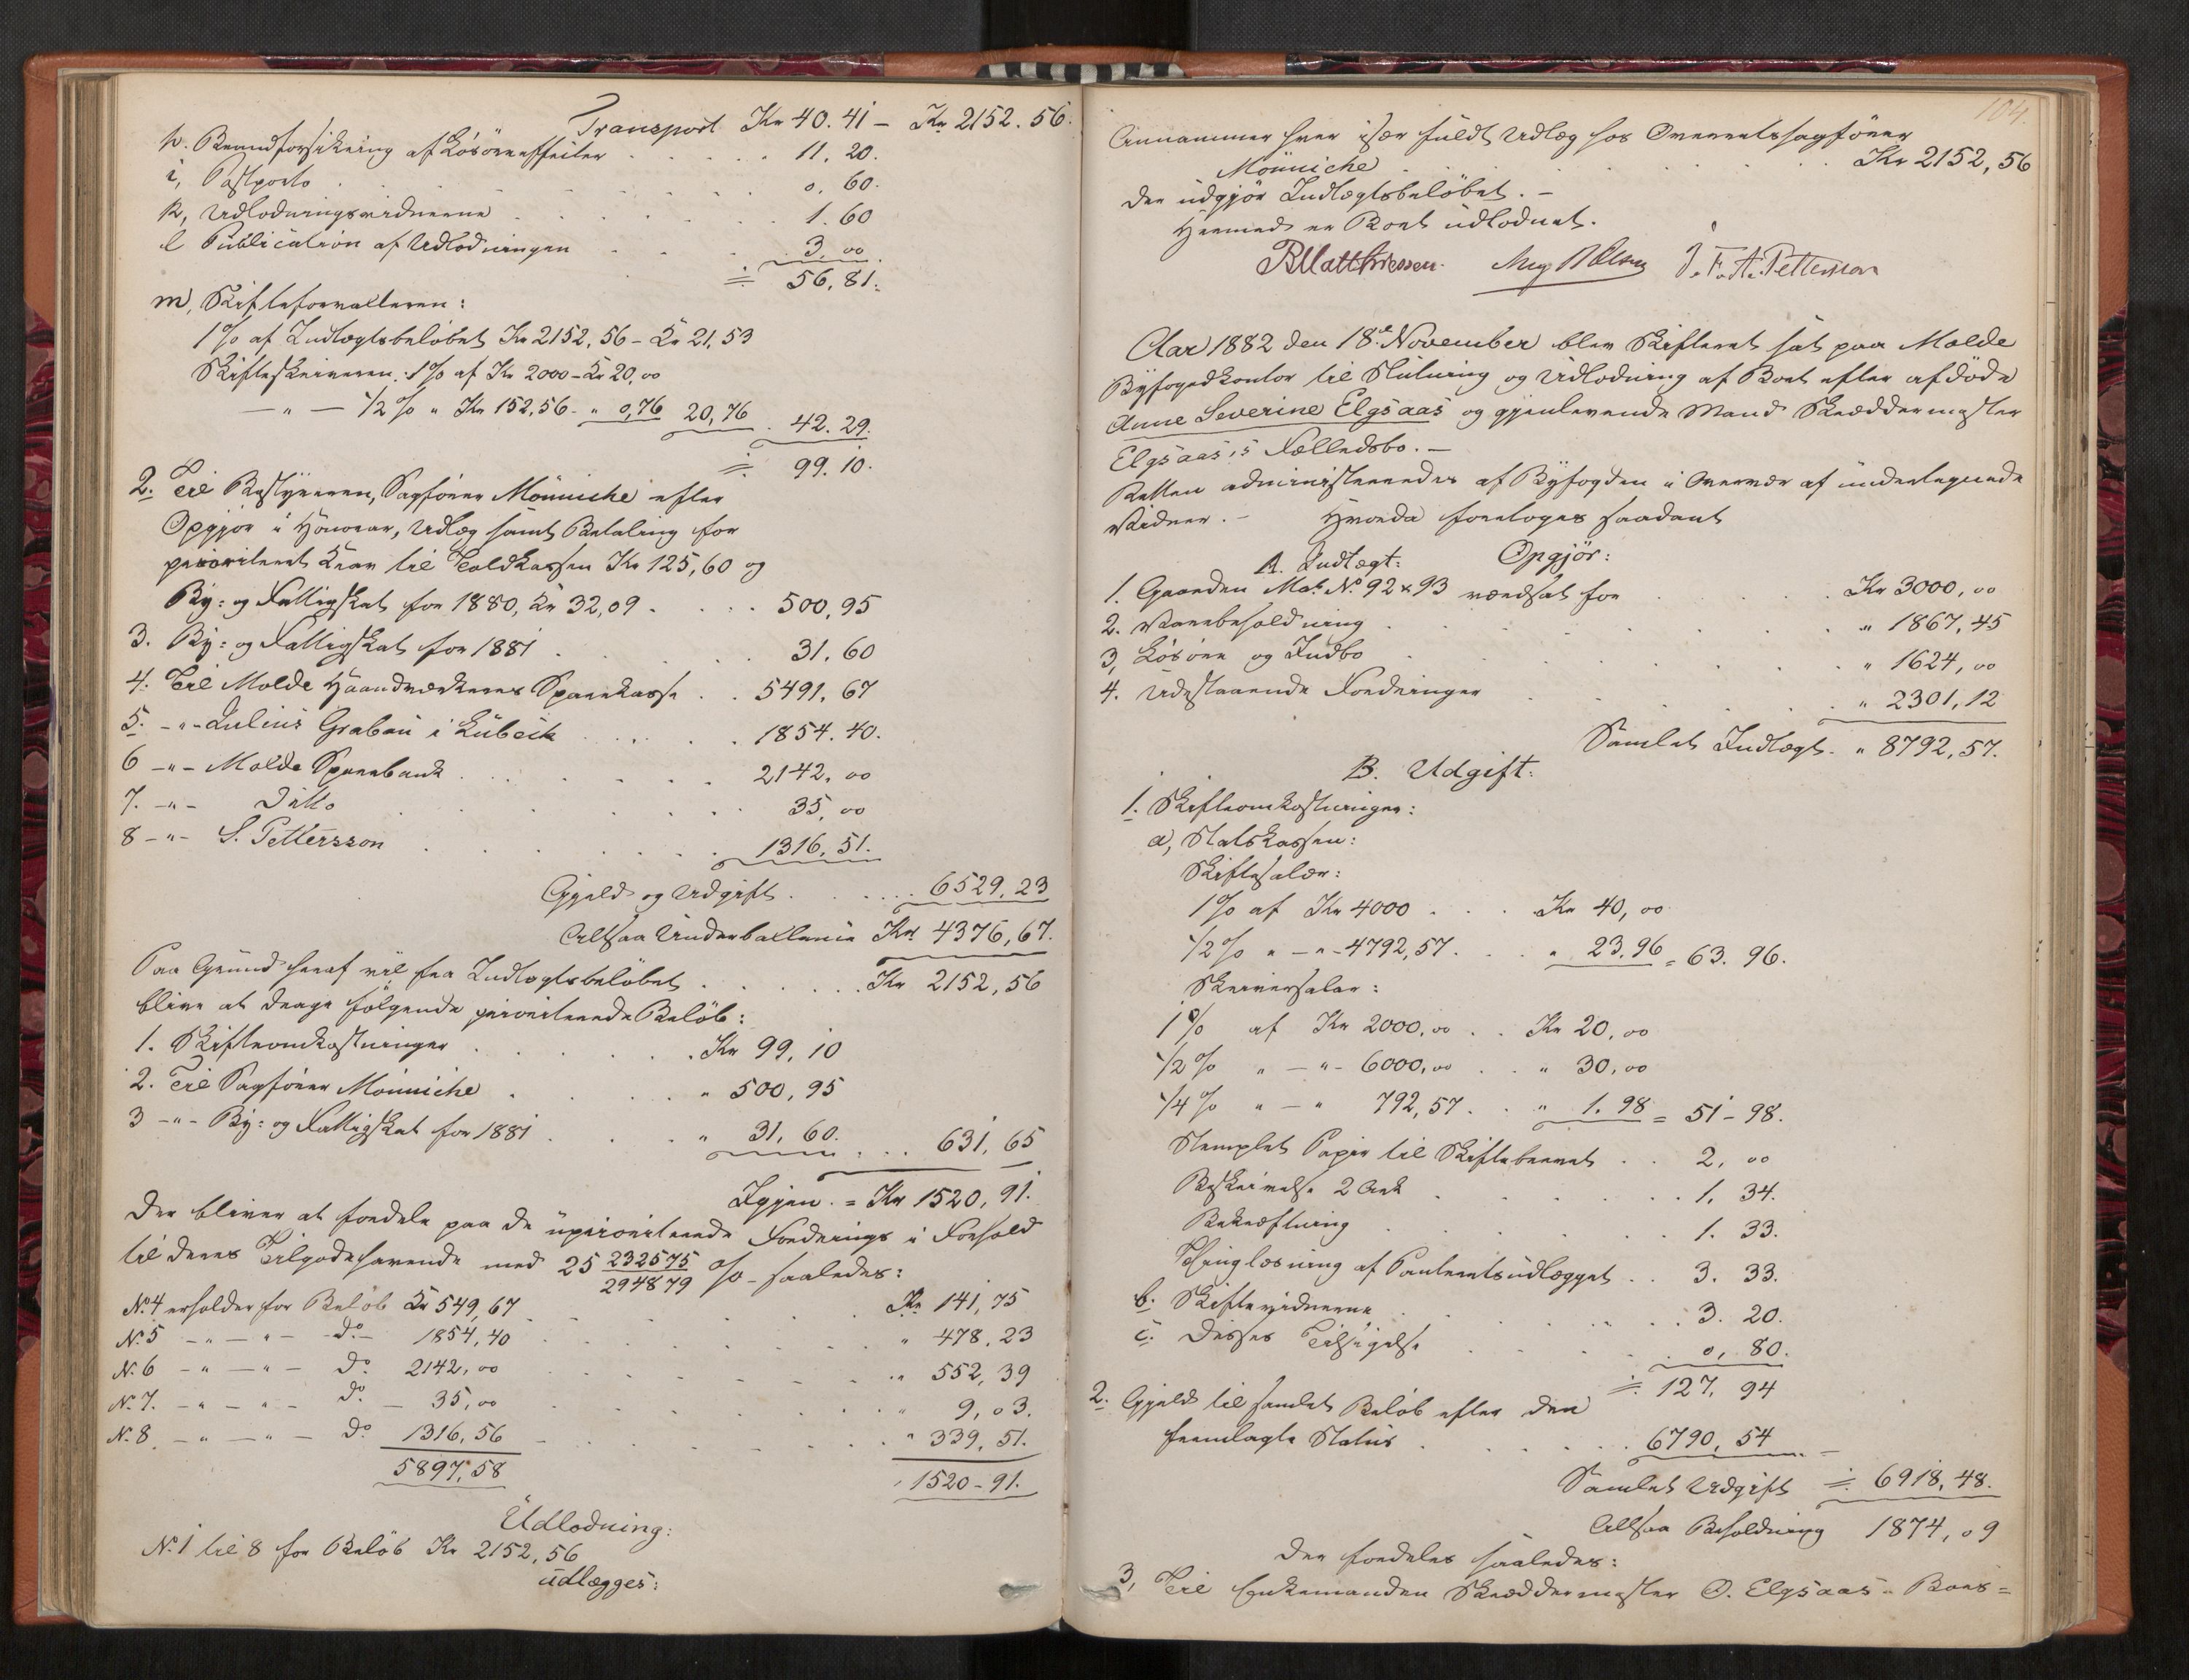 Transport Kr 40.41 – Kr 2152.56.
h. Brandforsikring af Løsøreeffekter . . . 11.20.
i, Postporto . . . 0.60.
k, Udlodningsvidnerne . . . 1.60
l Publication af Udlodningen . . . 3,00
÷ 56,81.
m, Skifteforvalteren:
1 % af Indtægtsbeløbet Kr 2152,56 – Kr 21,53
Skifteskriveren: 1 % af Kr 2000 – Kr 20,00
– " – 1/2 % " Kr 152,56 – " 0,76 20,76 . 42.29.
÷ 99.10.
2. Til Bestyreren, Sagfører Mönniche efter
Opgjør i Honorar, Udlæg samt Betaling for
prioriteret Krav til Toldkassen Kr 125,60 og
By- og Fattigskat for 1880, Kr 32,09 . . . 500,95
3. By- og Fattigskat for 1881 . . . 31.60
4. Til Molde Haandværkeres Sparekasse . . 5491,67
5. – " – Julius Grabau i Lübeck . . . 1854.40.
6 – " – Molde Sparebank . . . 2142,00
7. – " – Ditto . . . 35,00
8 – " – S. Pettersson . . . 1316,51.
Gjæld og Udgift . . . 6529,23
Altsaa Underballance Kr 4376,67.
Paa Grund heraf vil fra Indtægtsbeløbet . . . Kr 2152,56
blive at drage følgende prioriterede Beløb:
1. Skifteomkostninger . . . Kr 99,10
2. Til Sagfører Mönniche . . . " 500,95
3 – " – By- og Fattigskat for 1881 . . . " 31,60. . . . 631,65
Igjen . = Kr 1520,91.
der bliver at fordele paa de upriorterede Fordringer i Forhold
til deres Tilgodehavende med 25 232575/294879 % – saaledes:
No 4 erholder for Beløb Kr 549,67 . . . Kr 141,75
No 5 – " – " – do – 1854,40 . . . " 478,23
No 6 – " – " – do 2142,00 . . . " 552,39
No 7. – " – " – do – 35,00 . . . " 9,03.
No 8. – " – " – do 1316,56 . . . " 339,51.
5897,58 " 1520-91.
Udlodning:
No 1 til 8 for Beløb Kr 2152,56
udlægges:
104.
Annammer hver især fuldt Udlæg hos Overretssagfører
Mönniche . . . Kr 2152,56
der udgjør Indtægtsbeløbet. –
Hermed er Boet udloddet.
B Matthiessen. Aug. B Olsen J. F. A. Petterson
Aar 1882 den 18de November blev Skifteret sat paa Molde
Byfogedkontor til Slutning og Udlodning af Boet efter afdøde
Anne Severine Elgsaas og gjenlevende Mand Skræddermester
Elgsaas's Fælledsbo. –
Retten administreredes af Byfogden i Overvær af undertegnede
Vidner. – Hvorda foretoges saadant
Opgjør:
A. Indtægt:
1. Gaarden Mat. No 92 & 93 værdsat for . . . Kr 3000,00
2. Varebeholdning . . . " 1867,45
3, Løsøre og Indbo . . . " 1624,00
4. Udestaaende Fordringer . . . " 2301,12
Samlet Indtægt. " 8792,57.
B. Udgift:
1. Skifteomkostninger:
a, Statskassen:
Skiftesalær:
1 % af Kr 4000 . . . Kr 40,00
1/2 % " – " – 4792,57 . . . " 23.96 = 63.96.
Skriversalær:
1 % af Kr 2000,00 . . Kr 20,00
1/2 % " – " – 6000,00 . . " 30,00
1/4 % " – " 792,57 . . " 1.98 = 51-98.
Stemplet Papir til Skiftebrevet . . 2,00
Beskrivelse 2 Ark . . . 1,34.
Bekræftning . . . 1.33.
Thinglæsning af Panteretsudlægget . . 3.33.
b. Skiftevidnerne . . . 3.20.
c. disses Tilsigelse . . . 0,80.
÷ 127,94
2. Gjæld til samlet Beløb efter den
fremlagte Status . . . 6790,54
Samlet Udgift ÷ 6918,48.
Altsaa Beholdning 1874,09
der fordeles saaledes:
3, Til Enkemanden Skræddermester O. Elgsaas Boes=